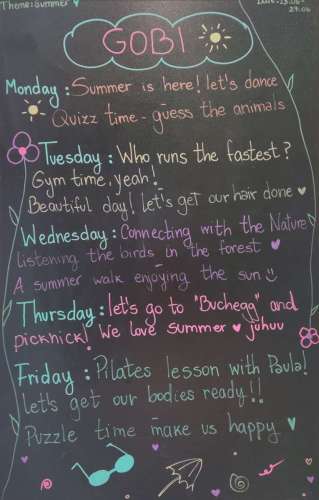 Theme: Summer ♥
Date: 23.06-
27.06
GOBI
Monday: Summer is here! let's dance
Quizz time - guess the animals
Tuesday: Who runs the fastest?
Gym time, yeah!
Beautiful day! let's get our hair done ♥
Wednesday: Connecting with the Nature
listening the birds in the forest ♥
A summer walk enjoying the sun ☺
Thursday: let's go to "Buchegg" and
picknick! We love summer ♥ juhuu
Friday: Pilates lesson with Paula!
let's get our bodies ready!!
Puzzle time make us happy ♥